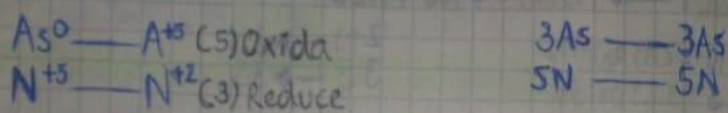 As⁰ — A⁺⁵ (5) Oxida
N⁺⁵ — N⁺² (3) Reduce
3As — 3As
5N — 5N